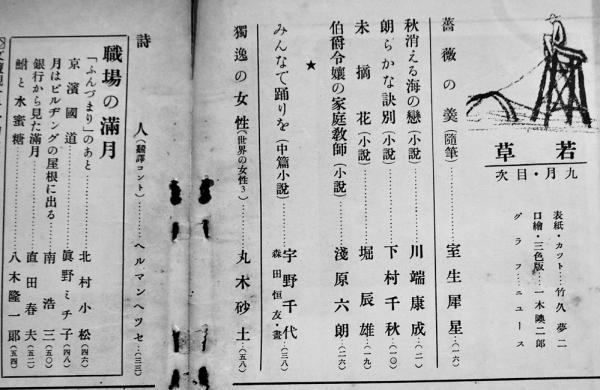 若草
九月・目次
表紙・カット…竹久夢二
口繪・三色版…一木隩二郎
グラフ・ニュース
薔薇の美(隨筆)…室生犀星(一六)
秋消える海の戀(小説)…川端康成(二)
朗らかな訣別(小説)…下村千秋(一〇)
未摘花(小説)…堀辰雄(一九)
伯爵令孃の家庭教師(小説)…淺原六朗(二六)
★
みんなで踊りを(中篇小説)…宇野千代(三八)
森田恒友・畫
獨逸の女性(世界の女性3)…丸木砂土(五八)
詩人(飜譯コント)…ヘルマンヘッセ(三三)
職場の滿月
「ふんづまり」のあと…北村小松(四六)
京濱國道…眞野ミチ子(四八)
月はビルヂングの屋根に出る…南浩三(五〇)
銀行から見た滿月…直田春夫(五二)
鮹と水蜜糖…八木隆一郎(五四)